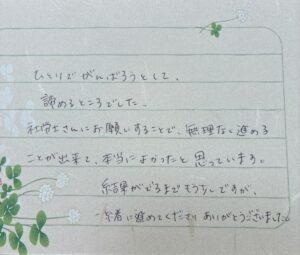 ひとりでがんばろうとして、
諦めるところでした。
社労士さんにお願いすることで、無理なく進める
ことが出来て、本当によかったと思っています。
結果がでるまでもう少しですが、
一緒に進めてくださり ありがとうございました